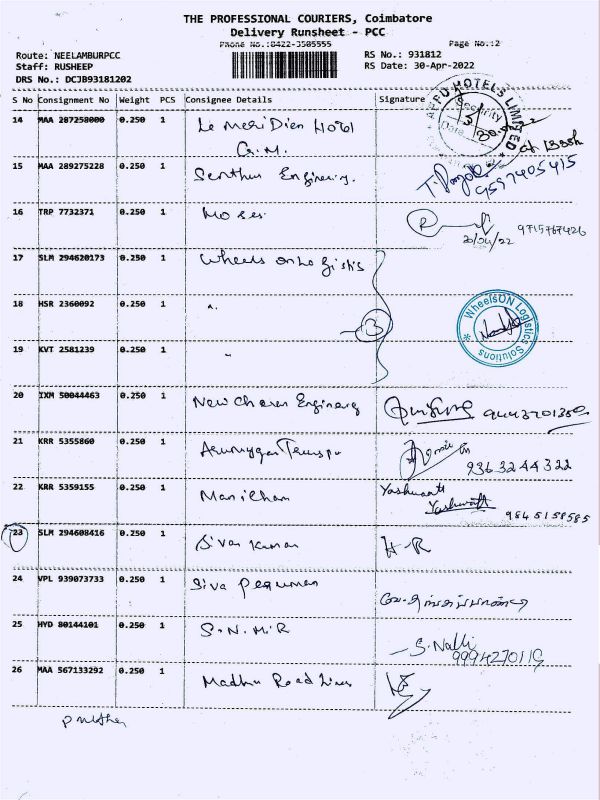 THE PROFESSIONAL COURIERS, Coimbatore
Delivery Runsheet - PCC
Phone No.:0422-3505555 Page No.:2
Route: NEELAMBURPCC RS No.: 931812
Staff: RUSHEEP RS Date: 30-Apr-2022
DRS No.: DCJB93181202
S No Consignment No Weight PCS Consignee Details Signature
APPU HOTELS LIMITED
Security
Date
14 MAA 287258000 0.250 1 Le Meridien Hotel
G.M.
15 MAA 289275228 0.250 1 9597405415
16 TRP 7732371 0.250 1 Moses R 9715767426
30/04/22
17 SLM 294620173 0.250 1 Wheels on Logistics
18 HSR 2360092 0.250 1 " 3
WheelsON Logistics Solutions
19 KVT 2581239 0.250 1 "
20 IXM 50044463 0.250 1
21 KRR 5355860 0.250 1 9363244322
22 KRR 5359155 0.250 1 Manichan Yashwanth
Yashwanth 9845158585
23 SLM 294608416 0.250 1 Siva Kumar H-R
24 VPL 939073733 0.250 1 Siva Perumal
25 HYD 80144101 0.250 1 S.N.M.R S. Nalli
9994270119
26 MAA 567133292 0.250 1 Madhu Road Lines